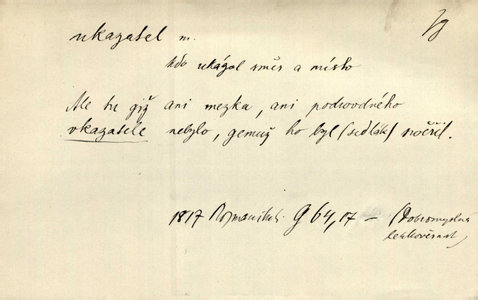 ukazatel m.
kdo ukázal směr a místo
Ale tu giž ani mezka, ani podwodného
vkazatele nebylo, gemuž ho byl (sedlák) swěřil.
1817 Rozmanitosti G 64,17 – (Dobromyslná
lehkověrnost)